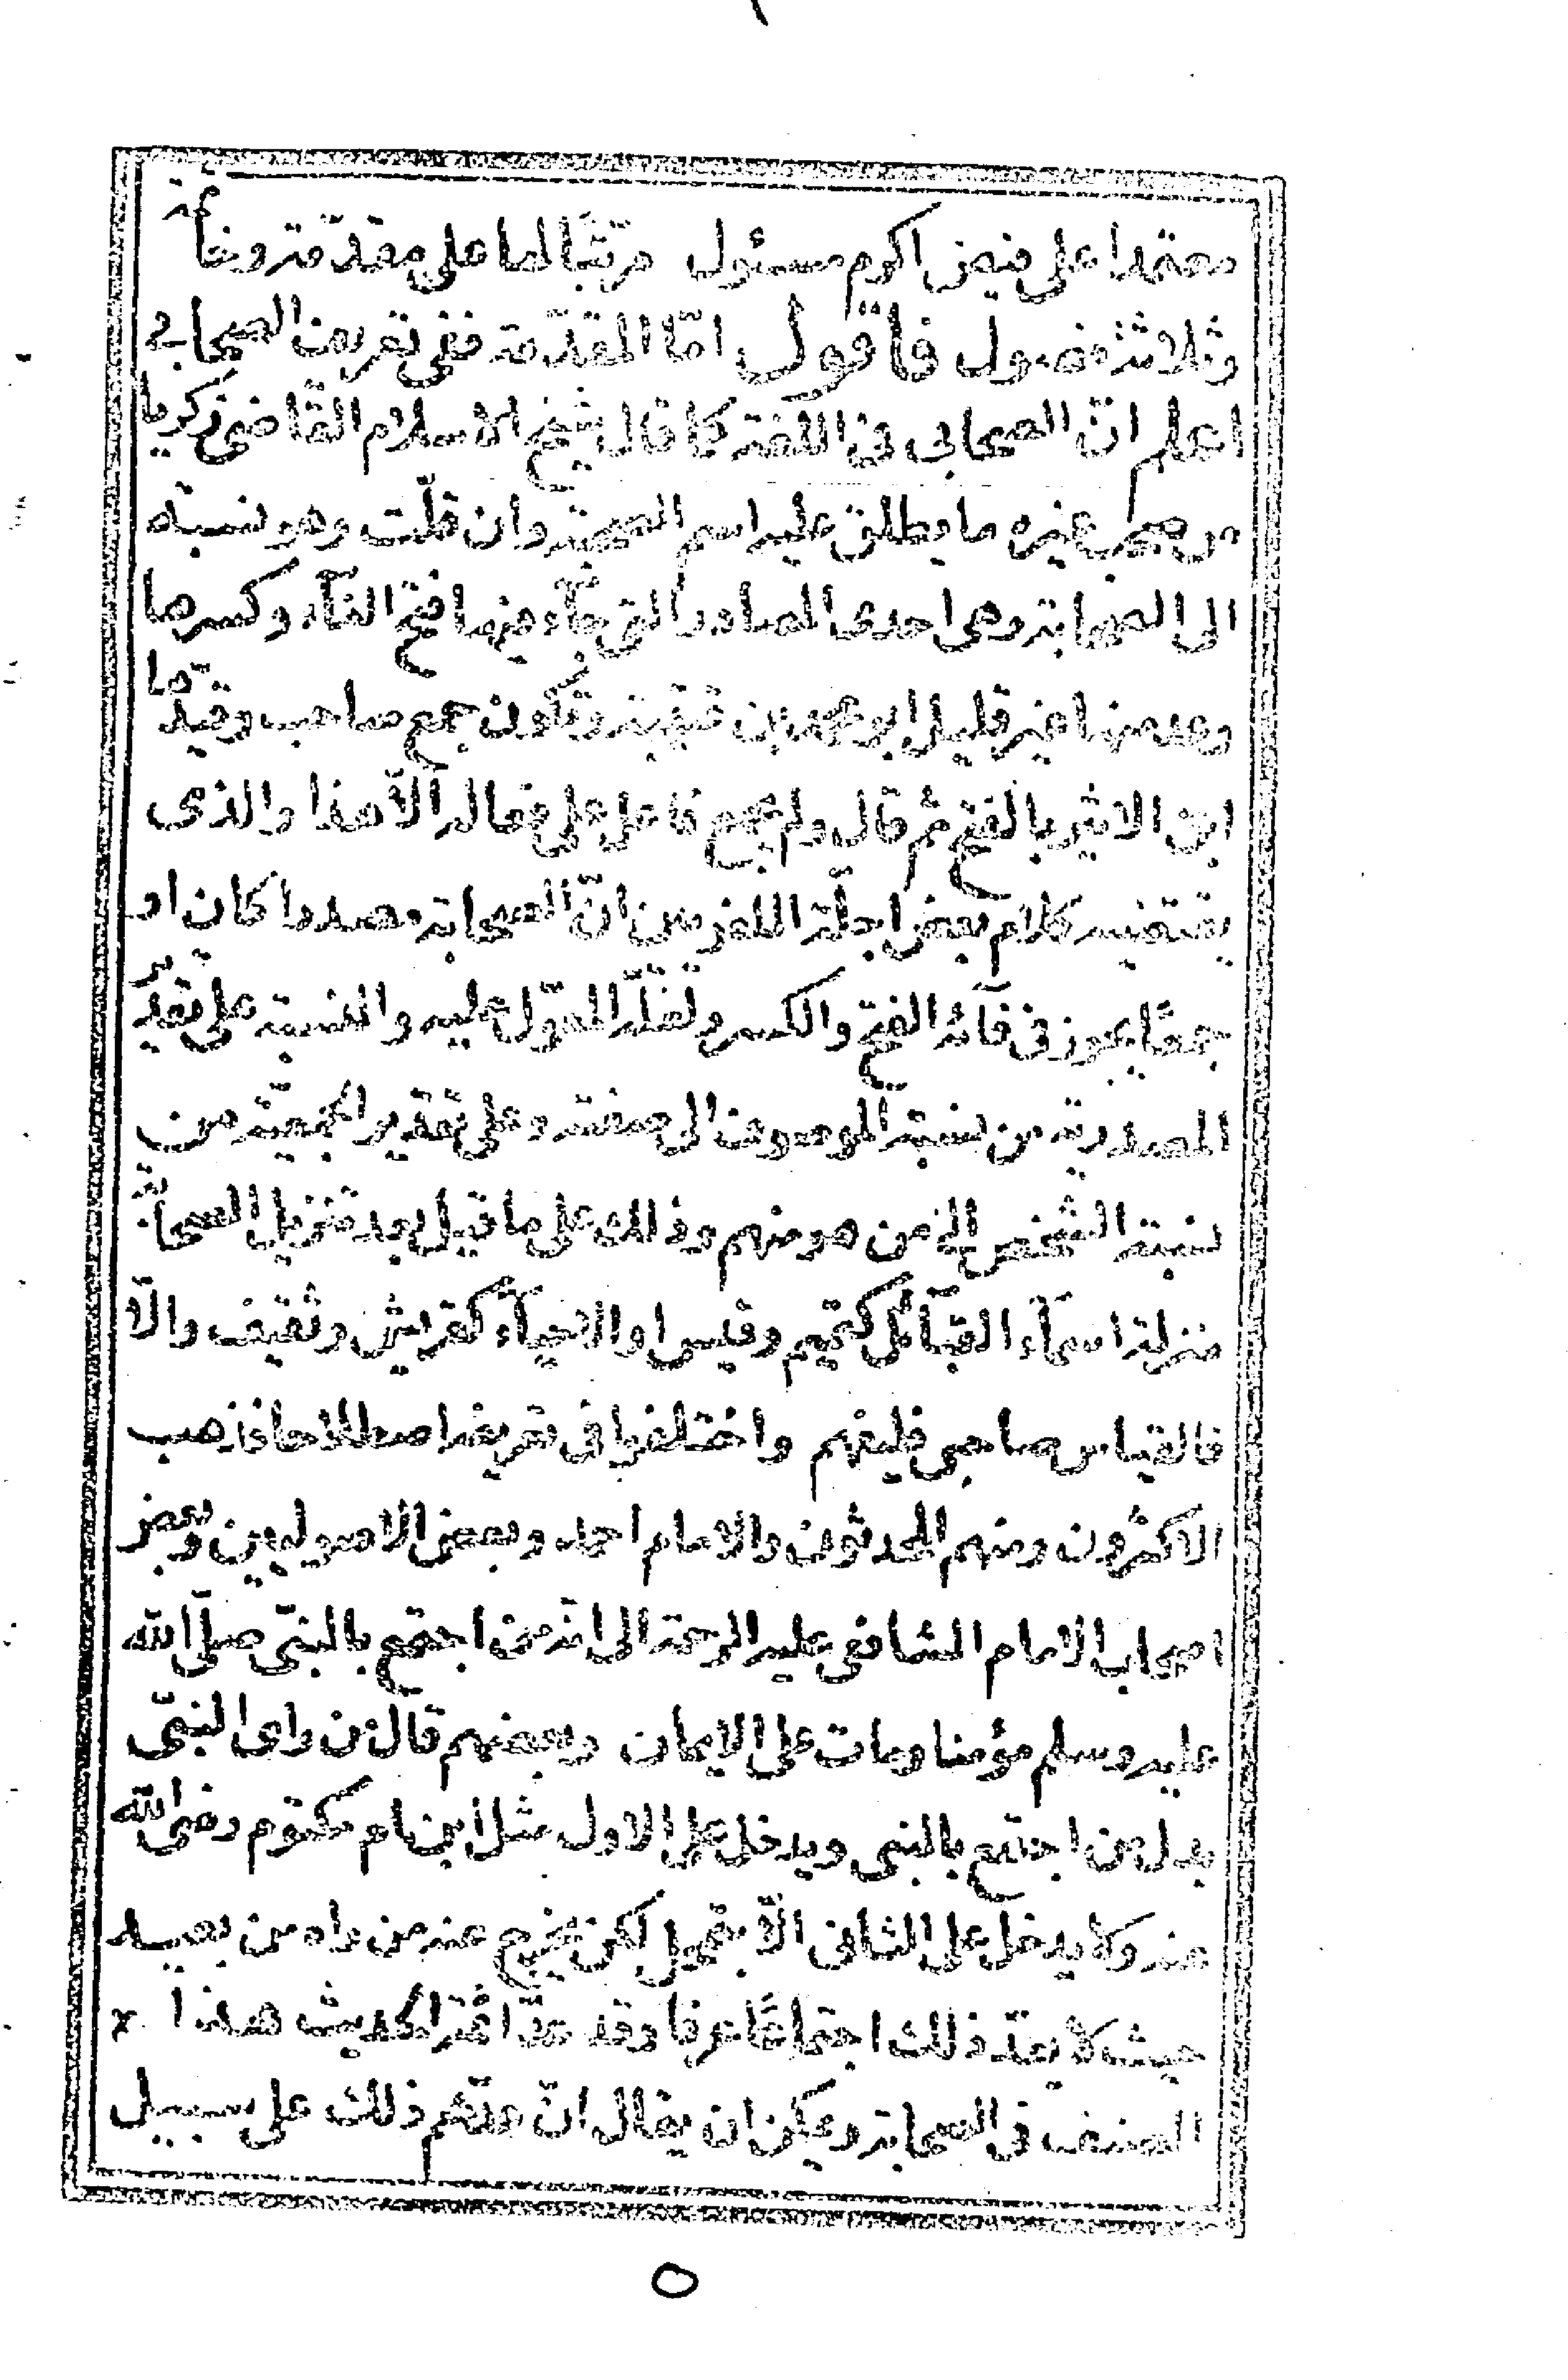 معتمدا على فيض اكرم مسئول مرتبًا لها على مقدّمة وخاتمة
وثلاثة فصول فاقول امّا المقدّمة ففى تعريف الصحابي
اعلم انّ الصحابى فى اللغة كما قال شيخ الاسلام القاضى زكريا
من صحب غيره ما يطلق عليه اسم الصحبة وان قلّت وهو نسبة
الى الصحابة وهى احدى المصادر التى جآء فيها فتح الفآء وكسرها
وعد منها غير قليل ابو محمد بن قتيبة وتكون جمع صاحب وقيّدها
ابن الاثير بالفتح ثم قال ولم يجمع فاعل على فعالة الّا هذا والذى
يقتضيه كلام بعض اجلّة اللغويين انّ الصحابة مصدرا كان او
جمعًا يجوز فى فآئه الفتح والكسر ولعلّه المعوّل عليه والنسبة على تقدير
المصدرية من نسبة الموصوف الى صفته وعلى تقدير الجمعيّة من
نسبة الشخص الى من هو منهم وذلك على ما قيل بعد تنزيل الصحابة
منزلة اسمآء القبآئل كتميم وقيس او الاحيآء كقريش وثقيف والّا
فالقياس صاحبى فليفهم واختلفوا فى تعريفه اصطلاحا فذهب
الاكثرون ومنهم المحدثون والامام احمد وبعض الاصوليين وبعض
اصحاب الامام الشافعى عليه الرحمة الى انّه من اجتمع بالنبىّ صلّى الله
عليه وسلم مؤمنا ومات على الايمان وبعضهم قال من راى النبىّ
بدل من اجتمع بالنبى ويدخل على الاول مثل ابن ام مكتوم رضى الله
عنه ولا يدخل على الثانى الّا بتمحّل لكن يخرج عنه من راه من بعيد
حيث لا يعدّ ذلك اجتماعًا عرفا وقد عدّ ائمّة الحديث هذا
الصنف فى الصحابة ويمكن ان يقال انّ عدّهم ذلك على سبيل
٥